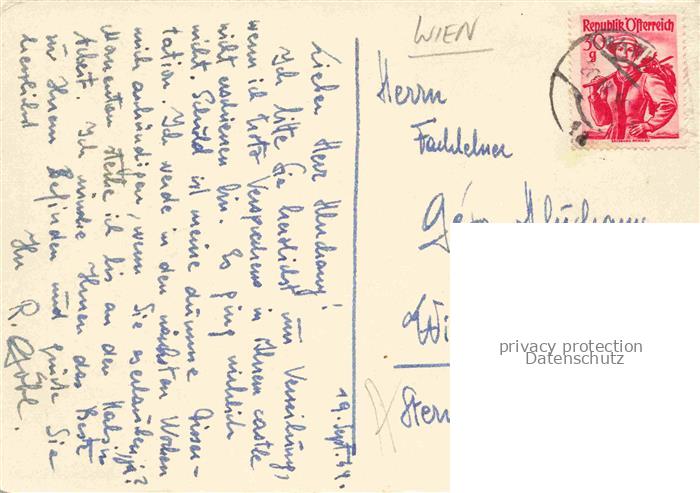 WIEN
Republik Österreich
30
g
Herrn
Fachlehrer
Géza
Wi
Stern
privacy protection
Datenschutz
19. Sept.
Lieber Herr
Ich bitte Sie herzlichst um Verzeihung,
wenn ich trotz Versprechens in Ihrem castle
nicht erschienen bin. Es ging wirklich
nicht. Schuld ist meine dumme Disser-
tation. Ich werde in den nächsten Wochen
mich ankündigen, wenn Sie es erlauben, ja?
Momentan stecke ich bis an den Hals in
Arbeit. Ich wünsche Ihnen das Beste
zu Ihrem Befinden und grüße Sie
herzlichst
Ihr R.